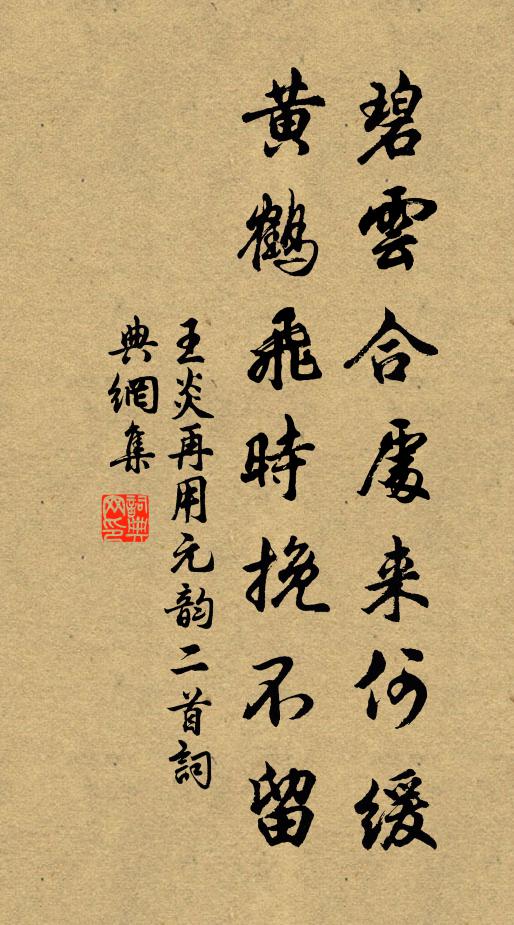 碧雲合處来何緩
黃鶴飛時挽不留
王炎再用元韵二首詞
典網集
詞典网印